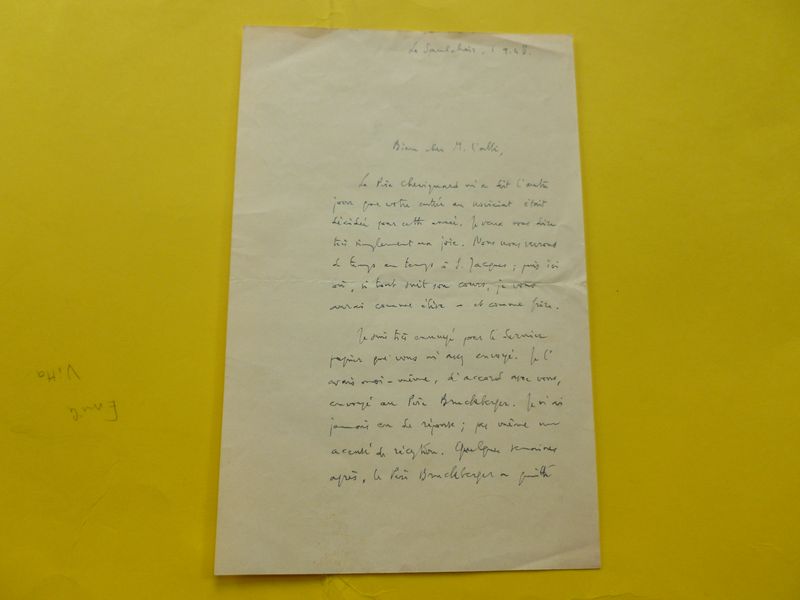 Le Saulchoir, 1.9.48.
Bien cher M. l'abbé,
Le Père Chevignard m'a dit l'autre
jour que votre entrée au noviciat était
décidée pour cette année. Je veux vous dire
très simplement ma joie. Nous nous verrons
de temps en temps à S. Jacques ; puis ici
où, si tout suit son cours, je vous
aurai comme élève – et comme frère.
Je suis très ennuyé pour le dernier
papier que vous m'avez envoyé. Je l'
avais moi-même, d'accord avec vous,
envoyé au Père Bruckberger. Je n'ai
jamais eu de réponse ; pas même un
accusé de réception. Quelques semaines
après, le Père Bruckberger a quitté
Vitta